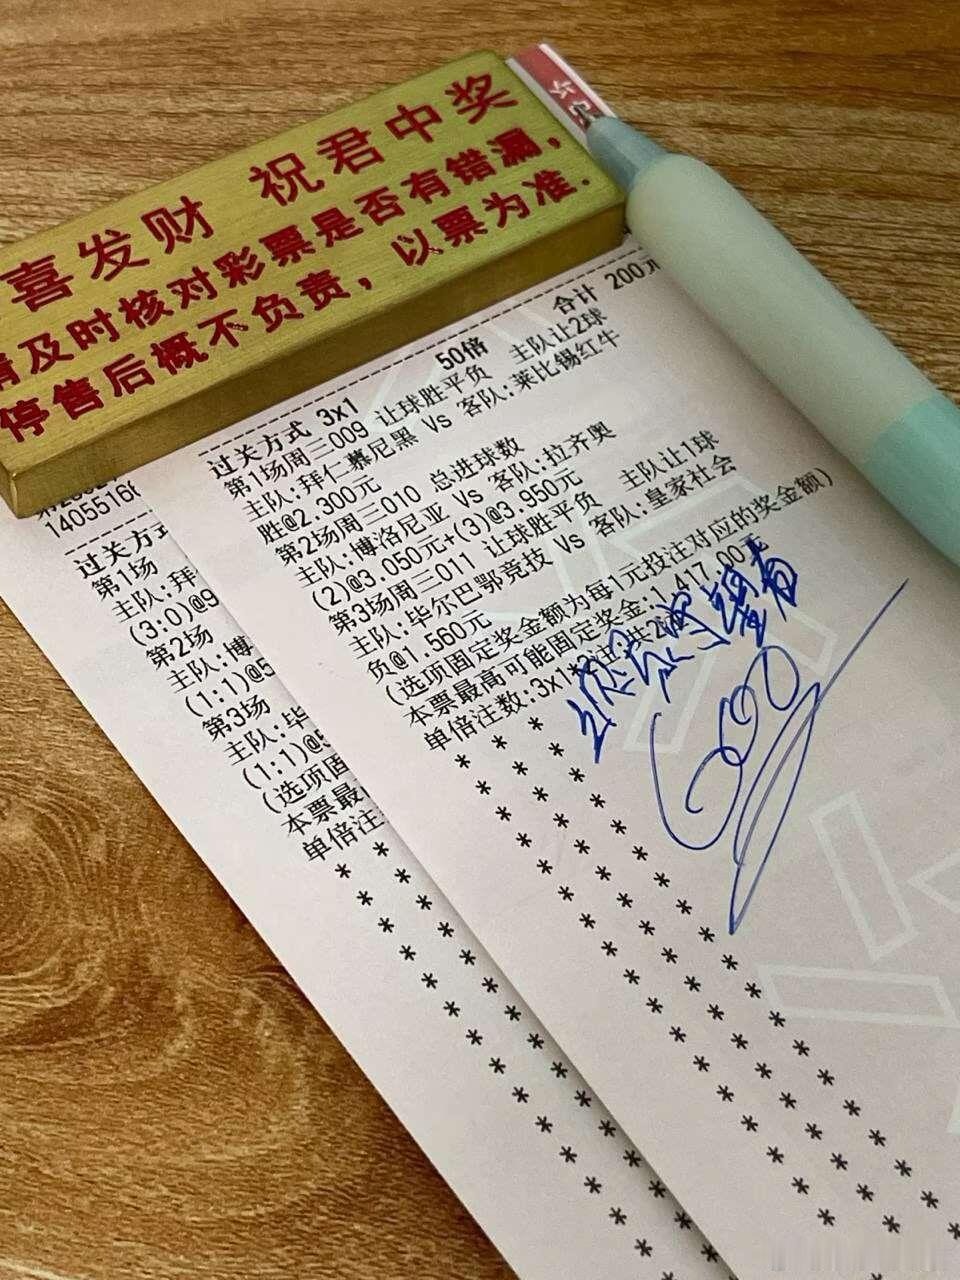 喜发财 祝君中奖
请及时核对彩票是否有错漏，
停售后概不负责，以票为准.
过关方式 3x1 50倍 合计 200元
第1场周三009 让球胜平负 主队让2球
主队:拜仁慕尼黑 Vs 客队:莱比锡红牛
胜@2.300元
第2场周三010 总进球数
主队:博洛尼亚 Vs 客队:拉齐奥
(2)@3.050元+(3)@3.950元
第3场周三011 让球胜平负 主队让1球
主队:毕尔巴鄂竞技 Vs 客队:皇家社会
负@1.560元
(选项固定奖金额为每1元投注对应的奖金额)
本票最高可能固定奖金:1,417.00元
单倍注数:3x1*
14055168
过关方式
第1场
主队:拜
(3:0)@9
第2场
主队:博
(1:1)@5
第3场
主队:毕
(1:1)@5
(选项固
本票最
单倍注